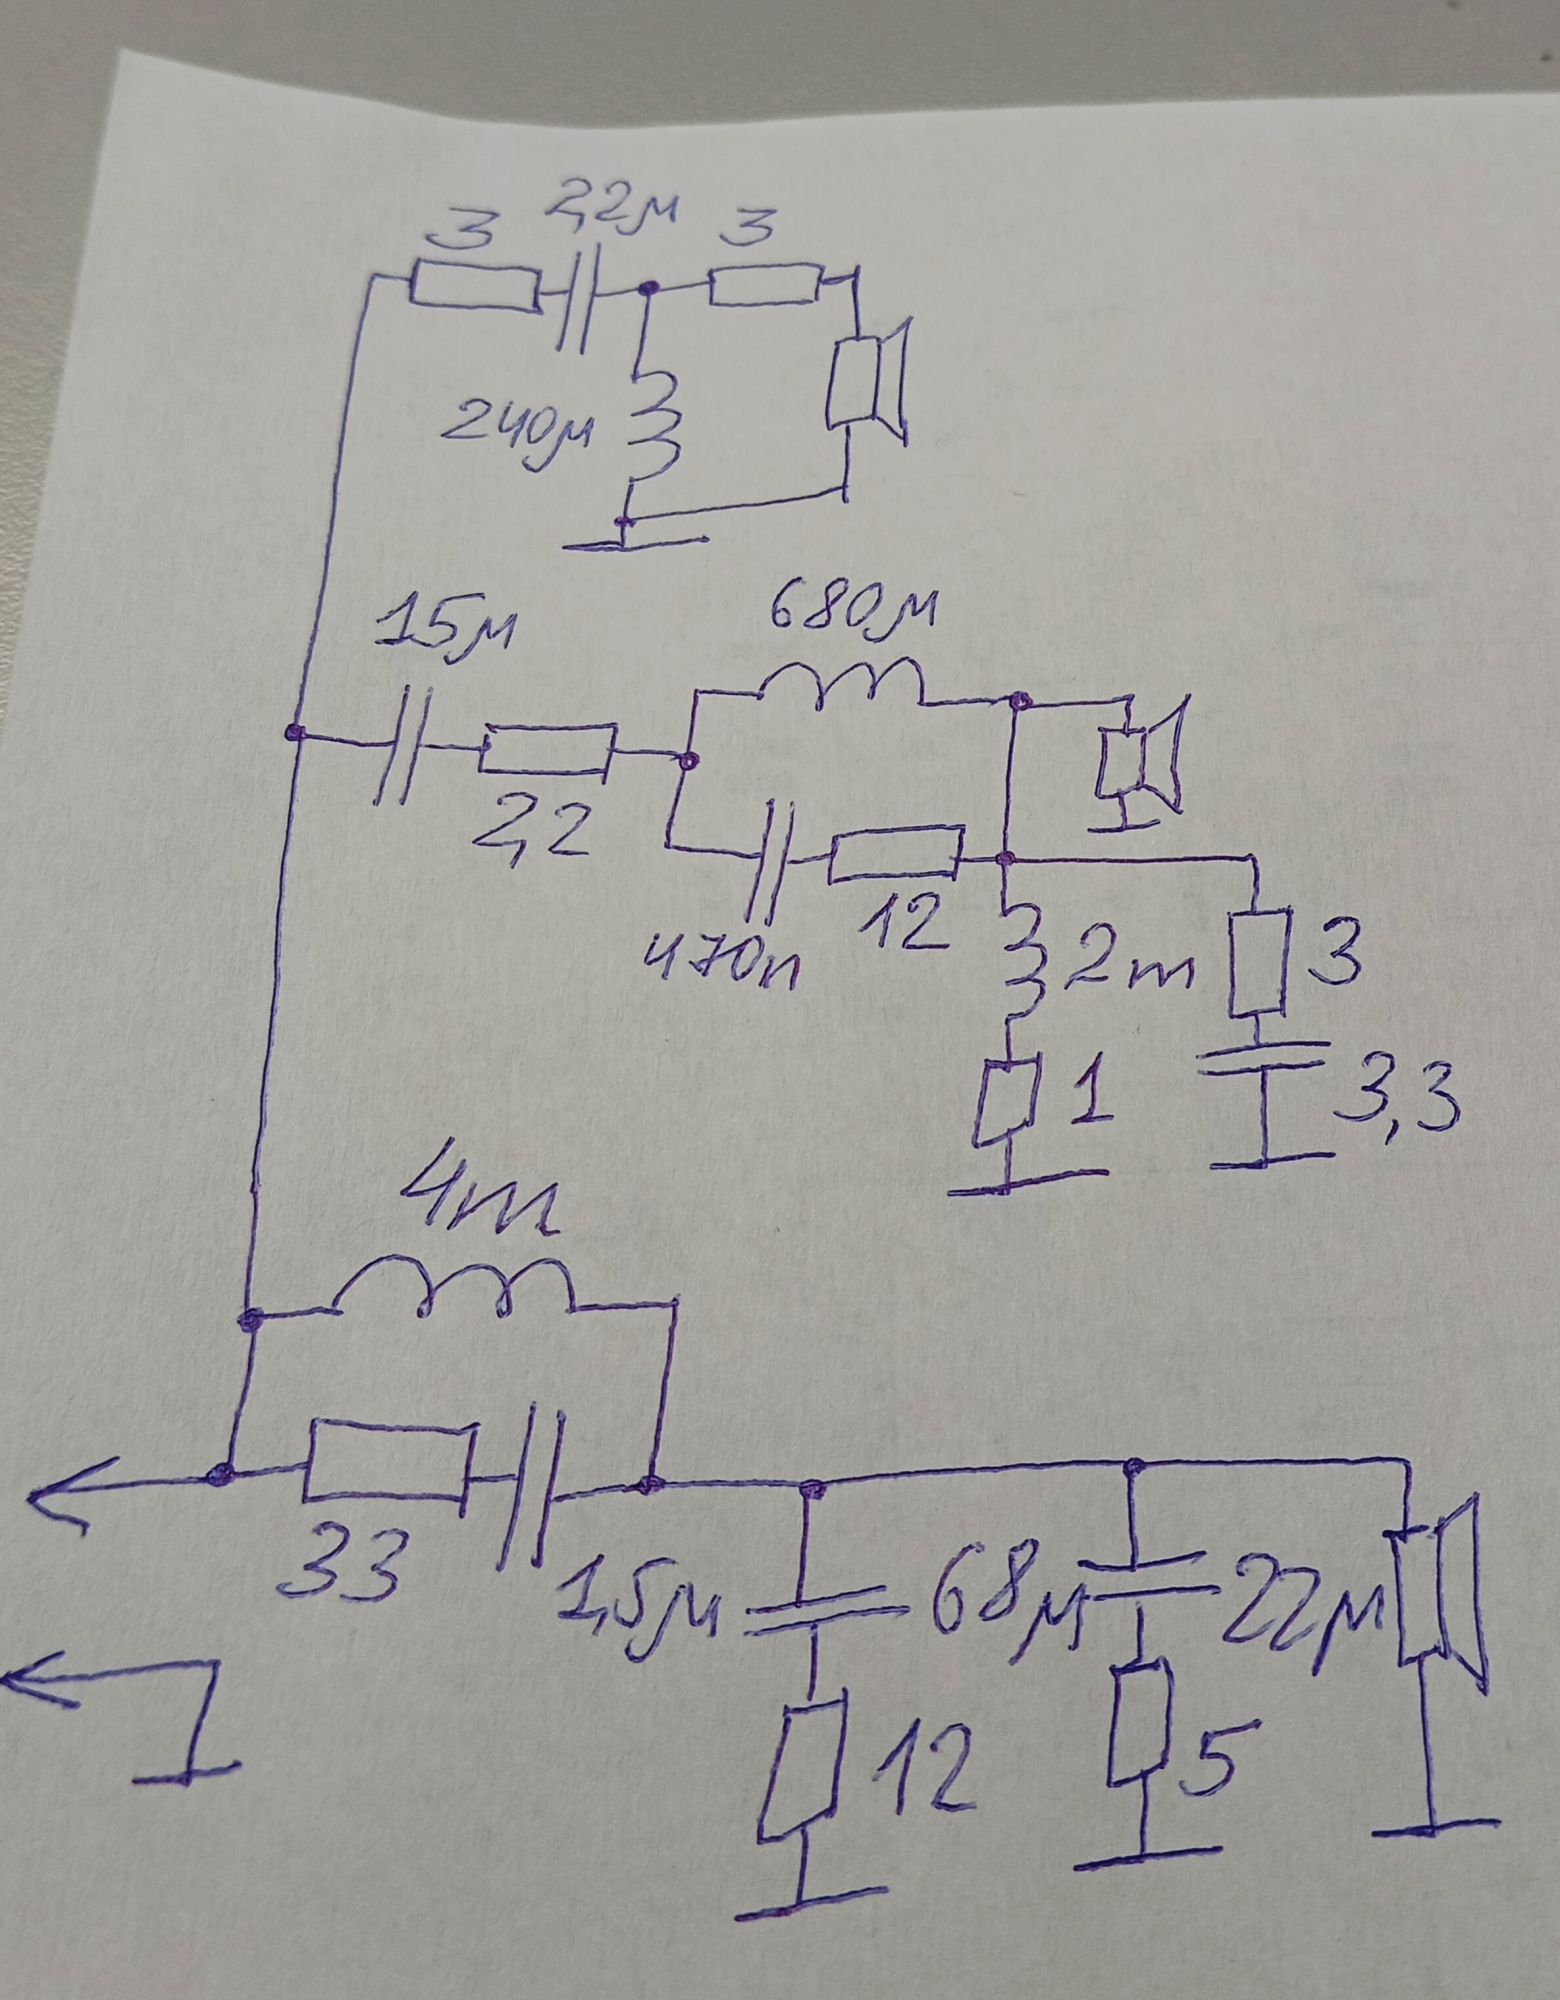 3
2,2μ
3
240μ
15μ
680μ
2,2
470n
12
2m
3
1
3,3
4m
33
1,5μ
68μ
22μ
12
5